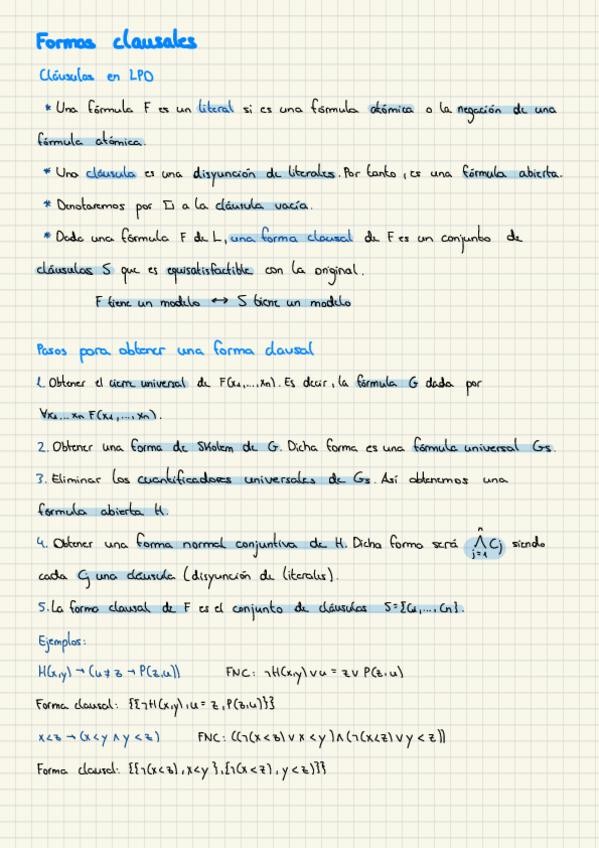 Formas clausales
Cláusulas en LPO
* Una fórmula F es un literal si es una fórmula atómica o la negación de una
fórmula atómica.
* Una cláusula es una disyunción de literales. Por tanto, es una fórmula abierta.
* Denotaremos por □ a la cláusula vacía.
* Dada una fórmula F de L, una forma clausal de F es un conjunto de
cláusulas S que es equisatisfactible con la original.
F tiene un modelo ↔ S tiene un modelo
Pasos para obtener una forma clausal
1. Obtener el cierre universal de F(x₁,...,xn). Es decir, la fórmula G dada por
∀x₁...xn F(x₁,...,xn).
2. Obtener una forma de Skolem de G. Dicha forma es una fórmula universal Gs.
3. Eliminar los cuantificadores universales de Gs. Así obtenemos una
fórmula abierta H.
4. Obtener una forma normal conjuntiva de H. Dicha forma será n⋀j=1 Cj siendo
cada Cj una cláusula (disyunción de literales).
5. La forma clausal de F es el conjunto de cláusulas S={C₁,...,Cn}.
Ejemplos:
H(x,y) → (u≠z → P(z,u)) FNC: ¬H(x,y)∨u = z∨ P(z,u)
Forma clausal: {{¬H(x,y),u = z,P(z,u)}}
x<z → (x<y ∧ y<z) FNC: ((¬(x<z)∨x<y)∧(¬(x<z)∨y<z))
Forma clausal: {{¬(x<z),x<y},{¬(x<z),y<z)}}